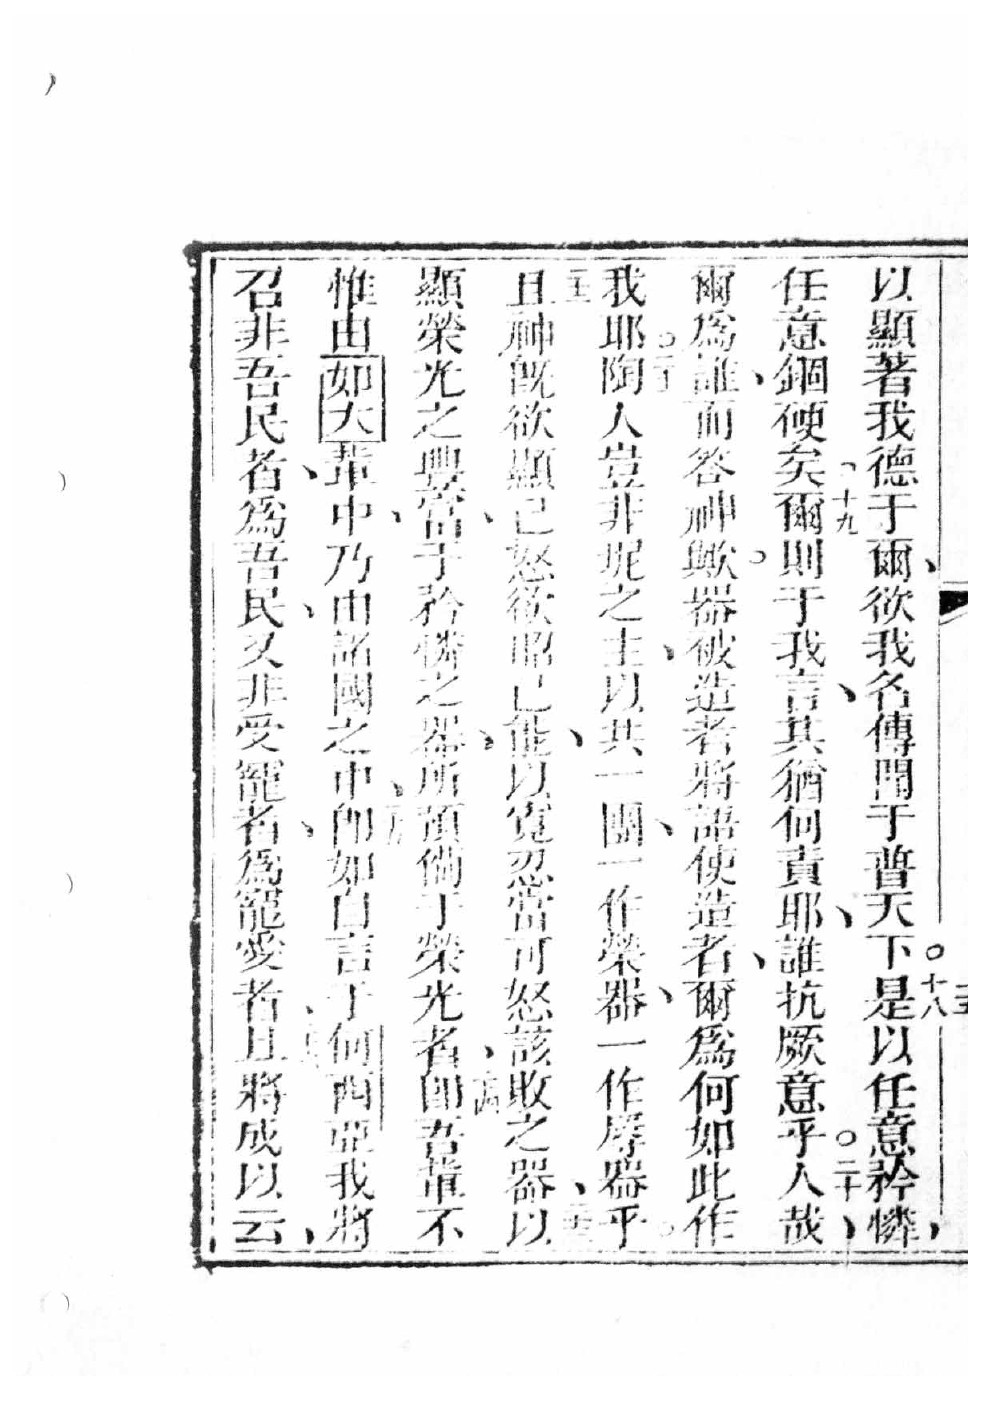 以顯著我德于爾、欲我名傳聞于普天下。十八是以任意矜憐、
任意錮硬矣。十九爾則于我言、其猶何責耶、誰抗厥意乎。二十人哉、
爾爲誰、而答神歟。器被造者將語使造者、爾爲何如此作
我耶。二一陶人豈非坭之主、以共一團、一作榮器、一作辱器乎。
二二且神旣欲顯己怒、欲昭己能、以寬忍當可怒該敗之器、二三以
顯榮光之豐、當于矜憐之器、所預備于榮光者、二四卽吾輩不
惟由如大輩中、乃由諸國之中、二五卽如自言于何西亞、我將
召非吾民者、爲吾民、又非受寵者、爲寵愛者、二六且將成以云、